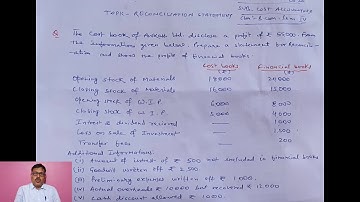 SUB: COST ACCOUNTING
TOPIC - RECONCILIATION STATEMENT
Q The Cost book of Avkash Ltd. disclose a profit of ₹ 55000 from
The informations given below. Prepare a statement for Reconcili-
ation and show the profit of financial books.
Cost books (₹) Financial books (₹)
Opening stock of Materials 18000 20000
Closing stock of Materials 16000 15000
Opening stock of W.I.P. 6000 8000
Closing stock of W.I.P. 5000 4000
Interest & dividend recieved — 1000
Loss on Sale of Investment — 1500
Transfer fees — 200
Additional Informations
(i) Amount of interest of ₹ 500 not included in financial books
(ii) Goodwill written off ₹ 2500
(iii) Preliminary expenses written off ₹ 1000.
(iv) Actual overheads ₹ 10000 but recovered ₹ 12000
(v) Cash discount allowed ₹ 1000